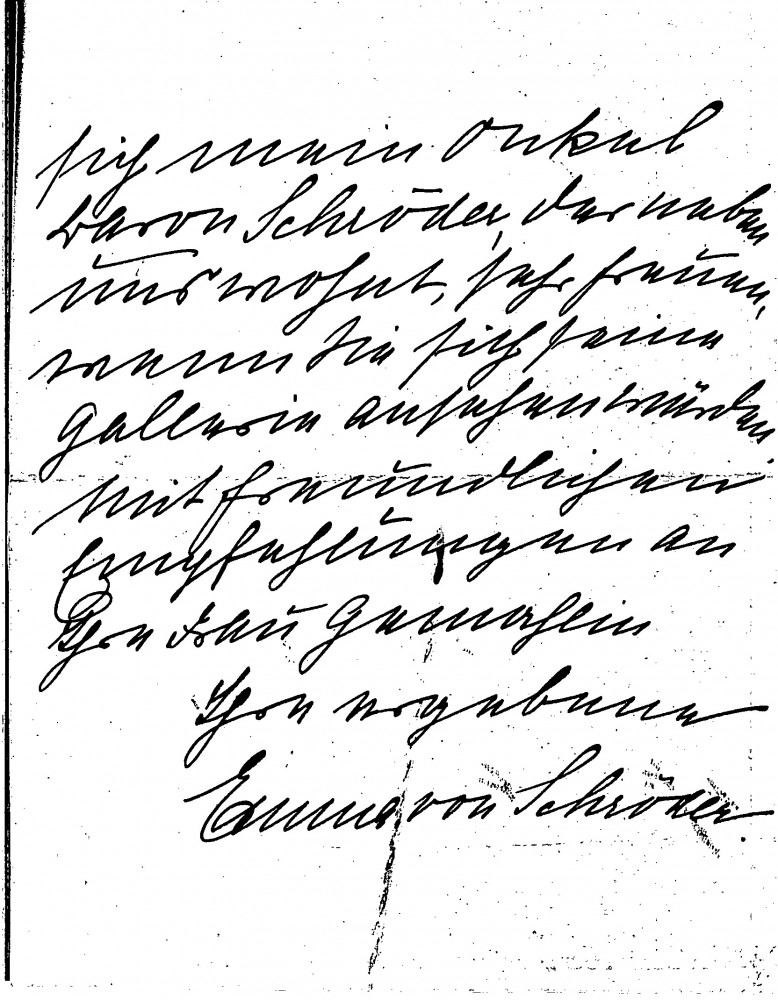 sich mein Onkel
Baron Schröder, der neben
uns wohnt, sehr freuen,
wenn Sie sich seine
Gallerie ansehen würden.
Mit freundlichen
Empfehlungen an
Ihre Frau Gemahlin
Ihre ergebene
Emma von Schröder.